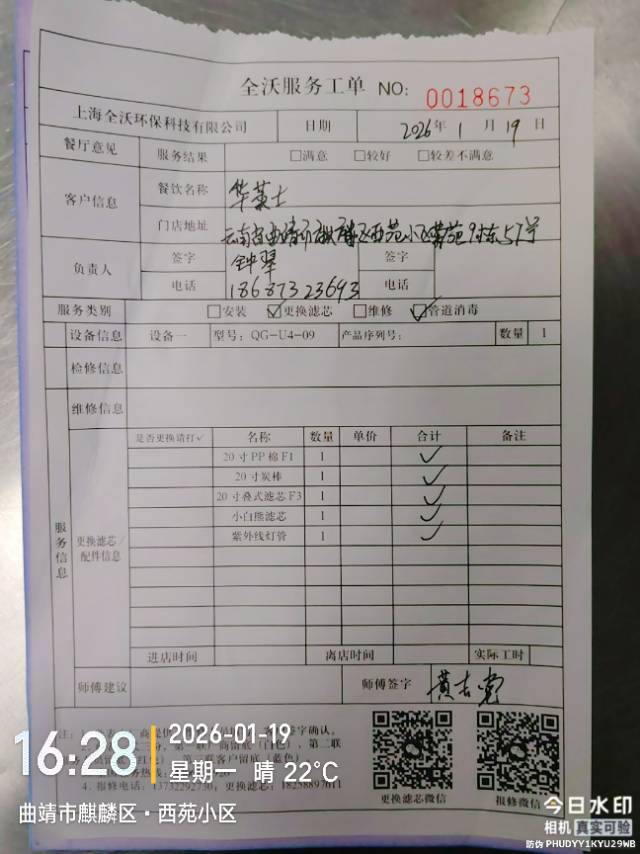 全沃服务工单 NO: 0018673
上海全沃环保科技有限公司 日期 2026年 1 月 19 日
餐厅意见 服务结果 □满意 □较好 □较差不满意
客户信息 餐饮名称 华莱士
门店地址 云南省曲靖市麒麟区西苑小区
负责人 签字 签字
电话 18687323693 电话
服务类别 □安装 ☑更换滤芯 □维修 ☑管道消毒
设备信息 设备一 型号: QG-U4-09 产品序列号: 数量 1
检修信息
维修信息
服务信息 更换滤芯/配件信息
是否更换请打✓ 名称 数量 单价 合计 备注
20寸PP棉F1 1 ✓
20寸炭棒 1 ✓
20寸叠式滤芯F3 1 ✓
小白熊滤芯 1 ✓
紫外线灯管 1 ✓
进店时间 离店时间 实际工时
师傅建议 师傅签字
签字确认。
第一联厂商留底(白色), 第二联
客户留底(蓝色)
4. 报修电话: 13732292730; 18258897011
更换滤芯微信 报修微信
16:28
2026-01-19
星期一 晴 22℃
曲靖市麒麟区·西苑小区
今日水印
相机 真实可验
防伪 PHUDYY1KYU29WB